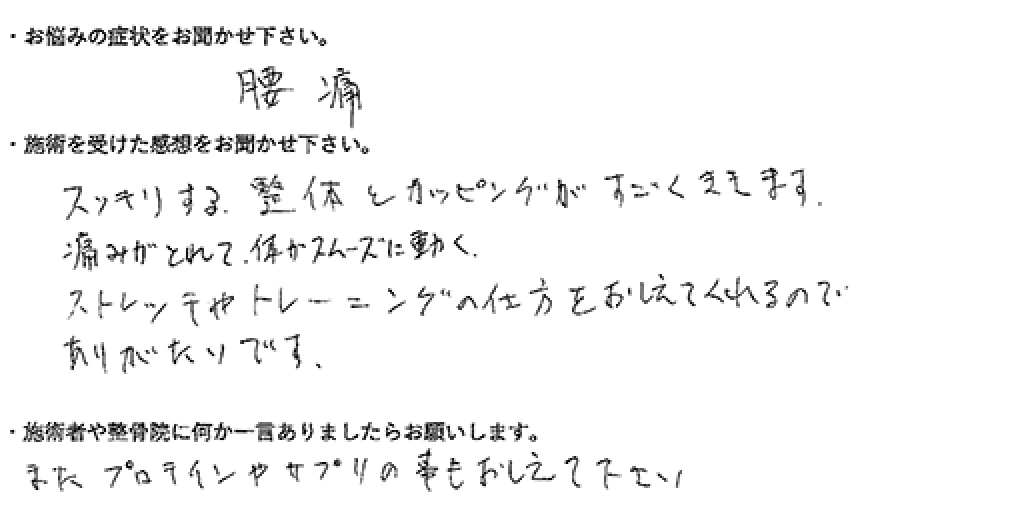 ・お悩みの症状をお聞かせ下さい。
腰痛
・施術を受けた感想をお聞かせ下さい。
スッキリする。整体とカッピングがすごくききます。
痛みがとれて、体がスムーズに動く。
ストレッチやトレーニングの仕方をおしえてくれるので
ありがたいです。
・施術者や整骨院に何か一言ありましたらお願いします。
またプロテインやサプリの事もおしえて下さい